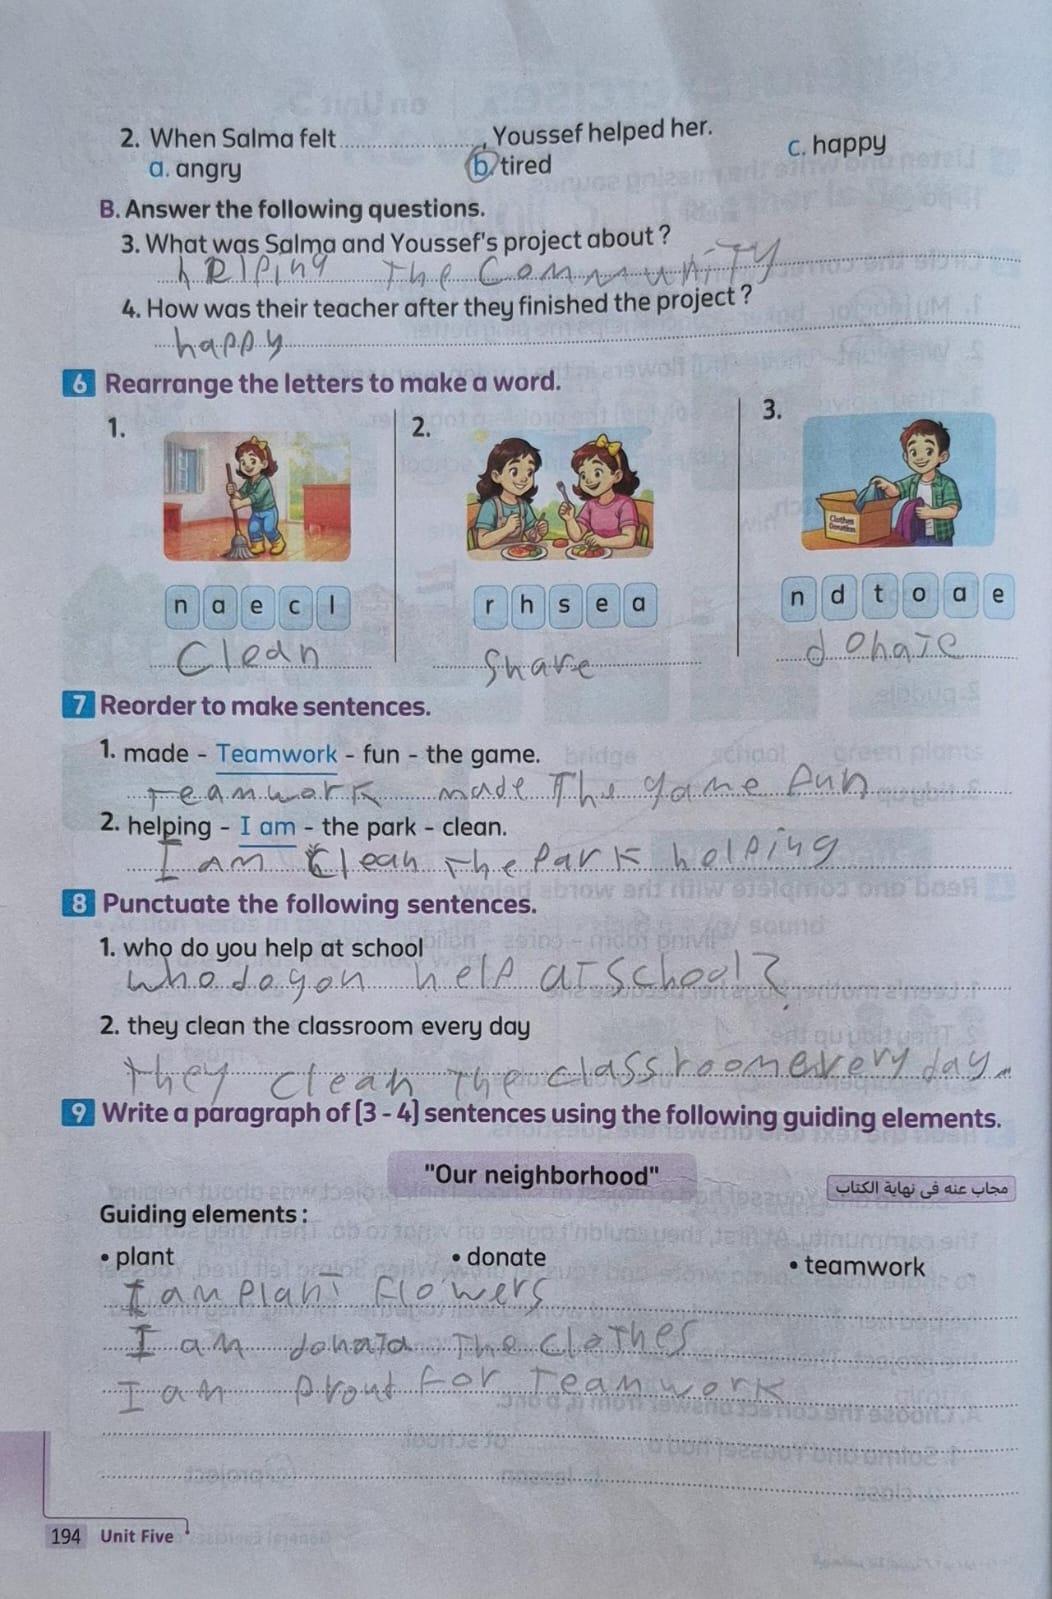 2. When Salma felt ........................, Youssef helped her.
a. angry b. tired c. happy
B. Answer the following questions.
3. What was Salma and Youssef's project about ?
helping the community
4. How was their teacher after they finished the project ?
happy
6 Rearrange the letters to make a word.
1. 2. 3.
Clothes Donation
n a e c l r h s e a n d t o a e
Clean Share donate
7 Reorder to make sentences.
1. made - Teamwork - fun - the game.
Teamwork made The game fun
2. helping - I am - the park - clean.
I am Clean the Park helping
8 Punctuate the following sentences.
1. who do you help at school
who do you help at school?
2. they clean the classroom every day
they clean the classroom every day.
9 Write a paragraph of (3 - 4) sentences using the following guiding elements.
"Our neighborhood"
مجاب عنه فى نهاية الكتاب
Guiding elements :
• plant • donate • teamwork
I am Plant flowers
I am donata The clothes
I am prout for Teamwork
194 Unit Five